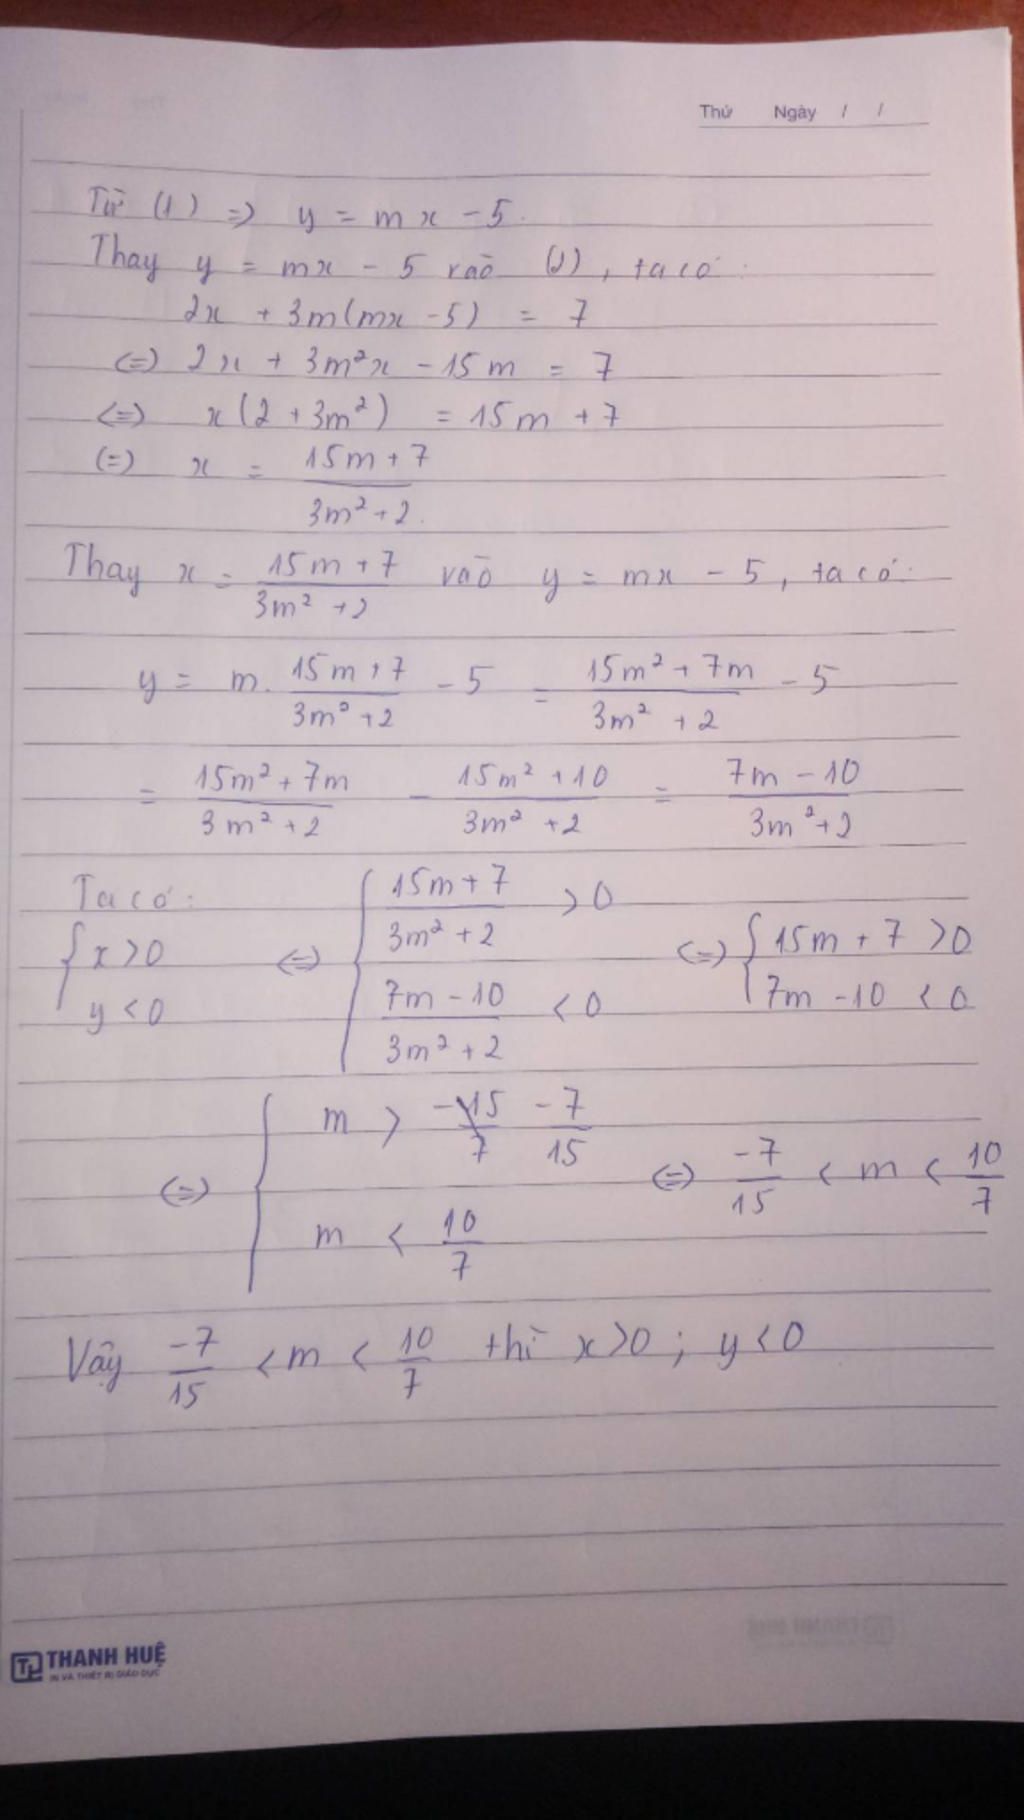 Thứ Ngày / /
Từ (1) => y = mx - 5.
Thay y = mx - 5 vào (2), ta có:
2x + 3m(mx - 5) = 7
(=) 2x + 3m²x - 15m = 7
(=) x(2 + 3m²) = 15m + 7
(=) x = \frac{15m + 7}{3m² + 2}.
Thay x = \frac{15m + 7}{3m² + 2} vào y = mx - 5, ta có:
y = m. \frac{15m + 7}{3m² + 2} - 5 = \frac{15m² + 7m}{3m² + 2} - 5
= \frac{15m² + 7m}{3m² + 2} - \frac{15m² + 10}{3m² + 2} = \frac{7m - 10}{3m² + 2}
Ta có:
{ x > 0 ; y < 0 (=) { \frac{15m + 7}{3m² + 2} > 0 ; \frac{7m - 10}{3m² + 2} < 0 (=) { 15m + 7 > 0 ; 7m - 10 < 0
(=) { m > \frac{-7}{15} ; m < \frac{10}{7} (=) \frac{-7}{15} < m < \frac{10}{7}
Vậy \frac{-7}{15} < m < \frac{10}{7} thì x > 0 ; y < 0
THANH HUỆ
IN VÀ THIẾT BỊ GIÁO DỤC